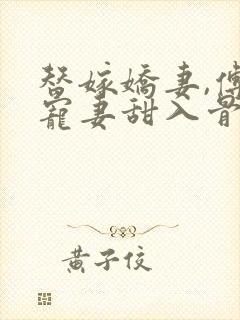 替嫁嬌妻,傅
寵妻甜入骨
黄子佼